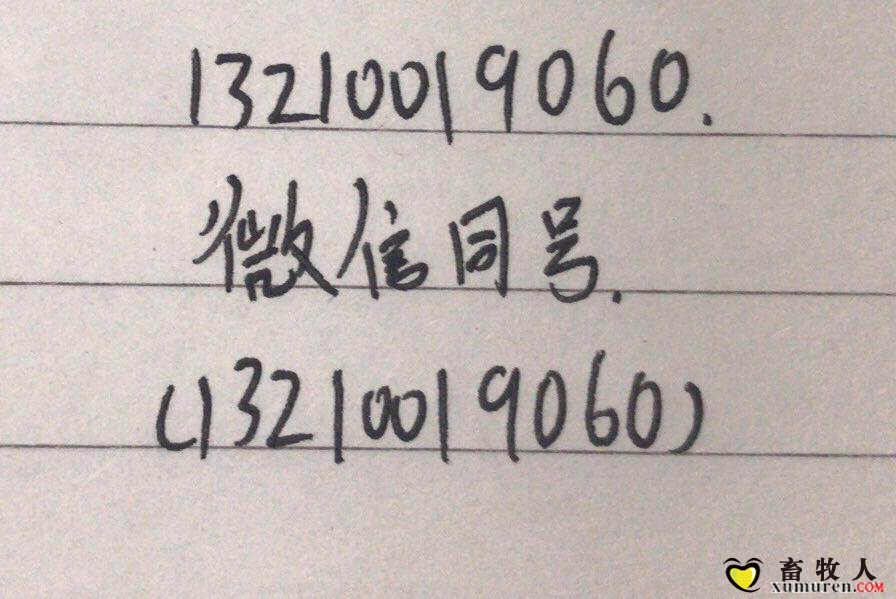 13210019060.
微信同号.
(13210019060)
畜牧人
xumuren.COM